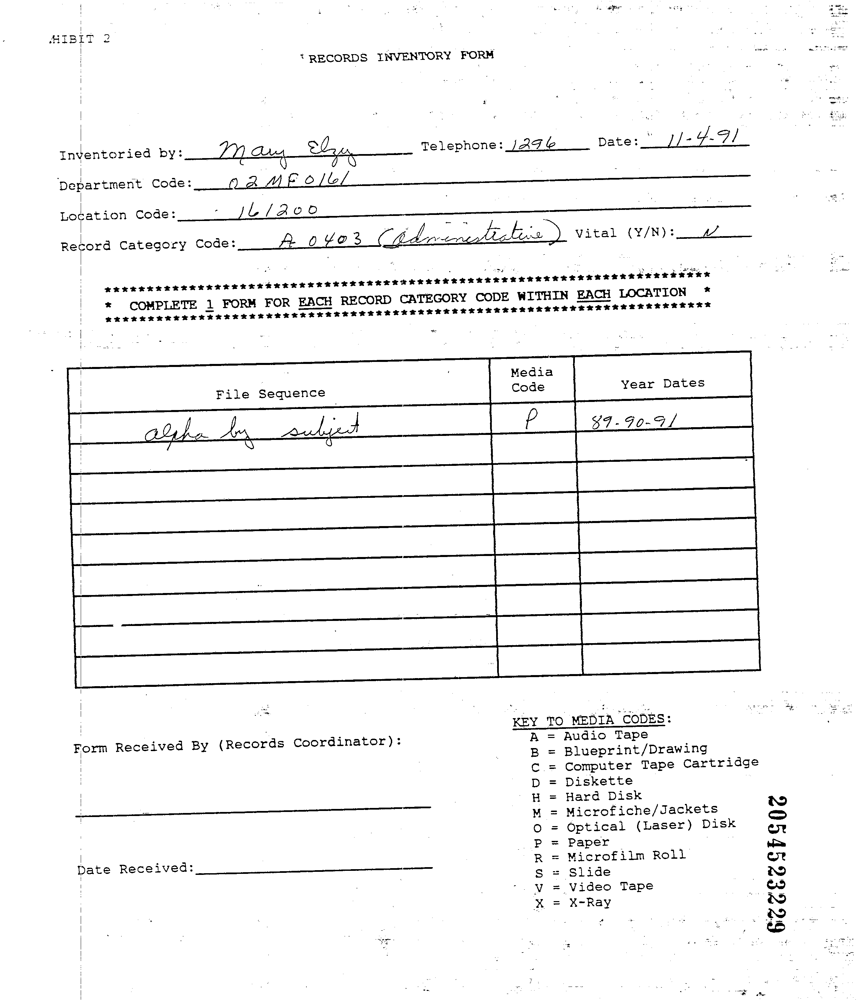 HIBIT 2
RECORDS INVENTORY FORM
Inventoried by: Mary Elzy Telephone: 1296 Date: 11-4-91
Department Code: 02MF0161
Location Code: 161200
Record Category Code: A 0403 (Administrative) Vital (Y/N): N
* COMPLETE 1 FORM FOR EACH RECORD CATEGORY CODE WITHIN EACH LOCATION *
File Sequence Media Code Year Dates
alpha by subject P 89-90-91
Form Received By (Records Coordinator):
Date Received:
KEY TO MEDIA CODES:
A = Audio Tape
B = Blueprint/Drawing
C = Computer Tape Cartridge
D = Diskette
H = Hard Disk
M = Microfiche/Jackets
O = Optical (Laser) Disk
P = Paper
R = Microfilm Roll
S = Slide
V = Video Tape
X = X-Ray
2054523229